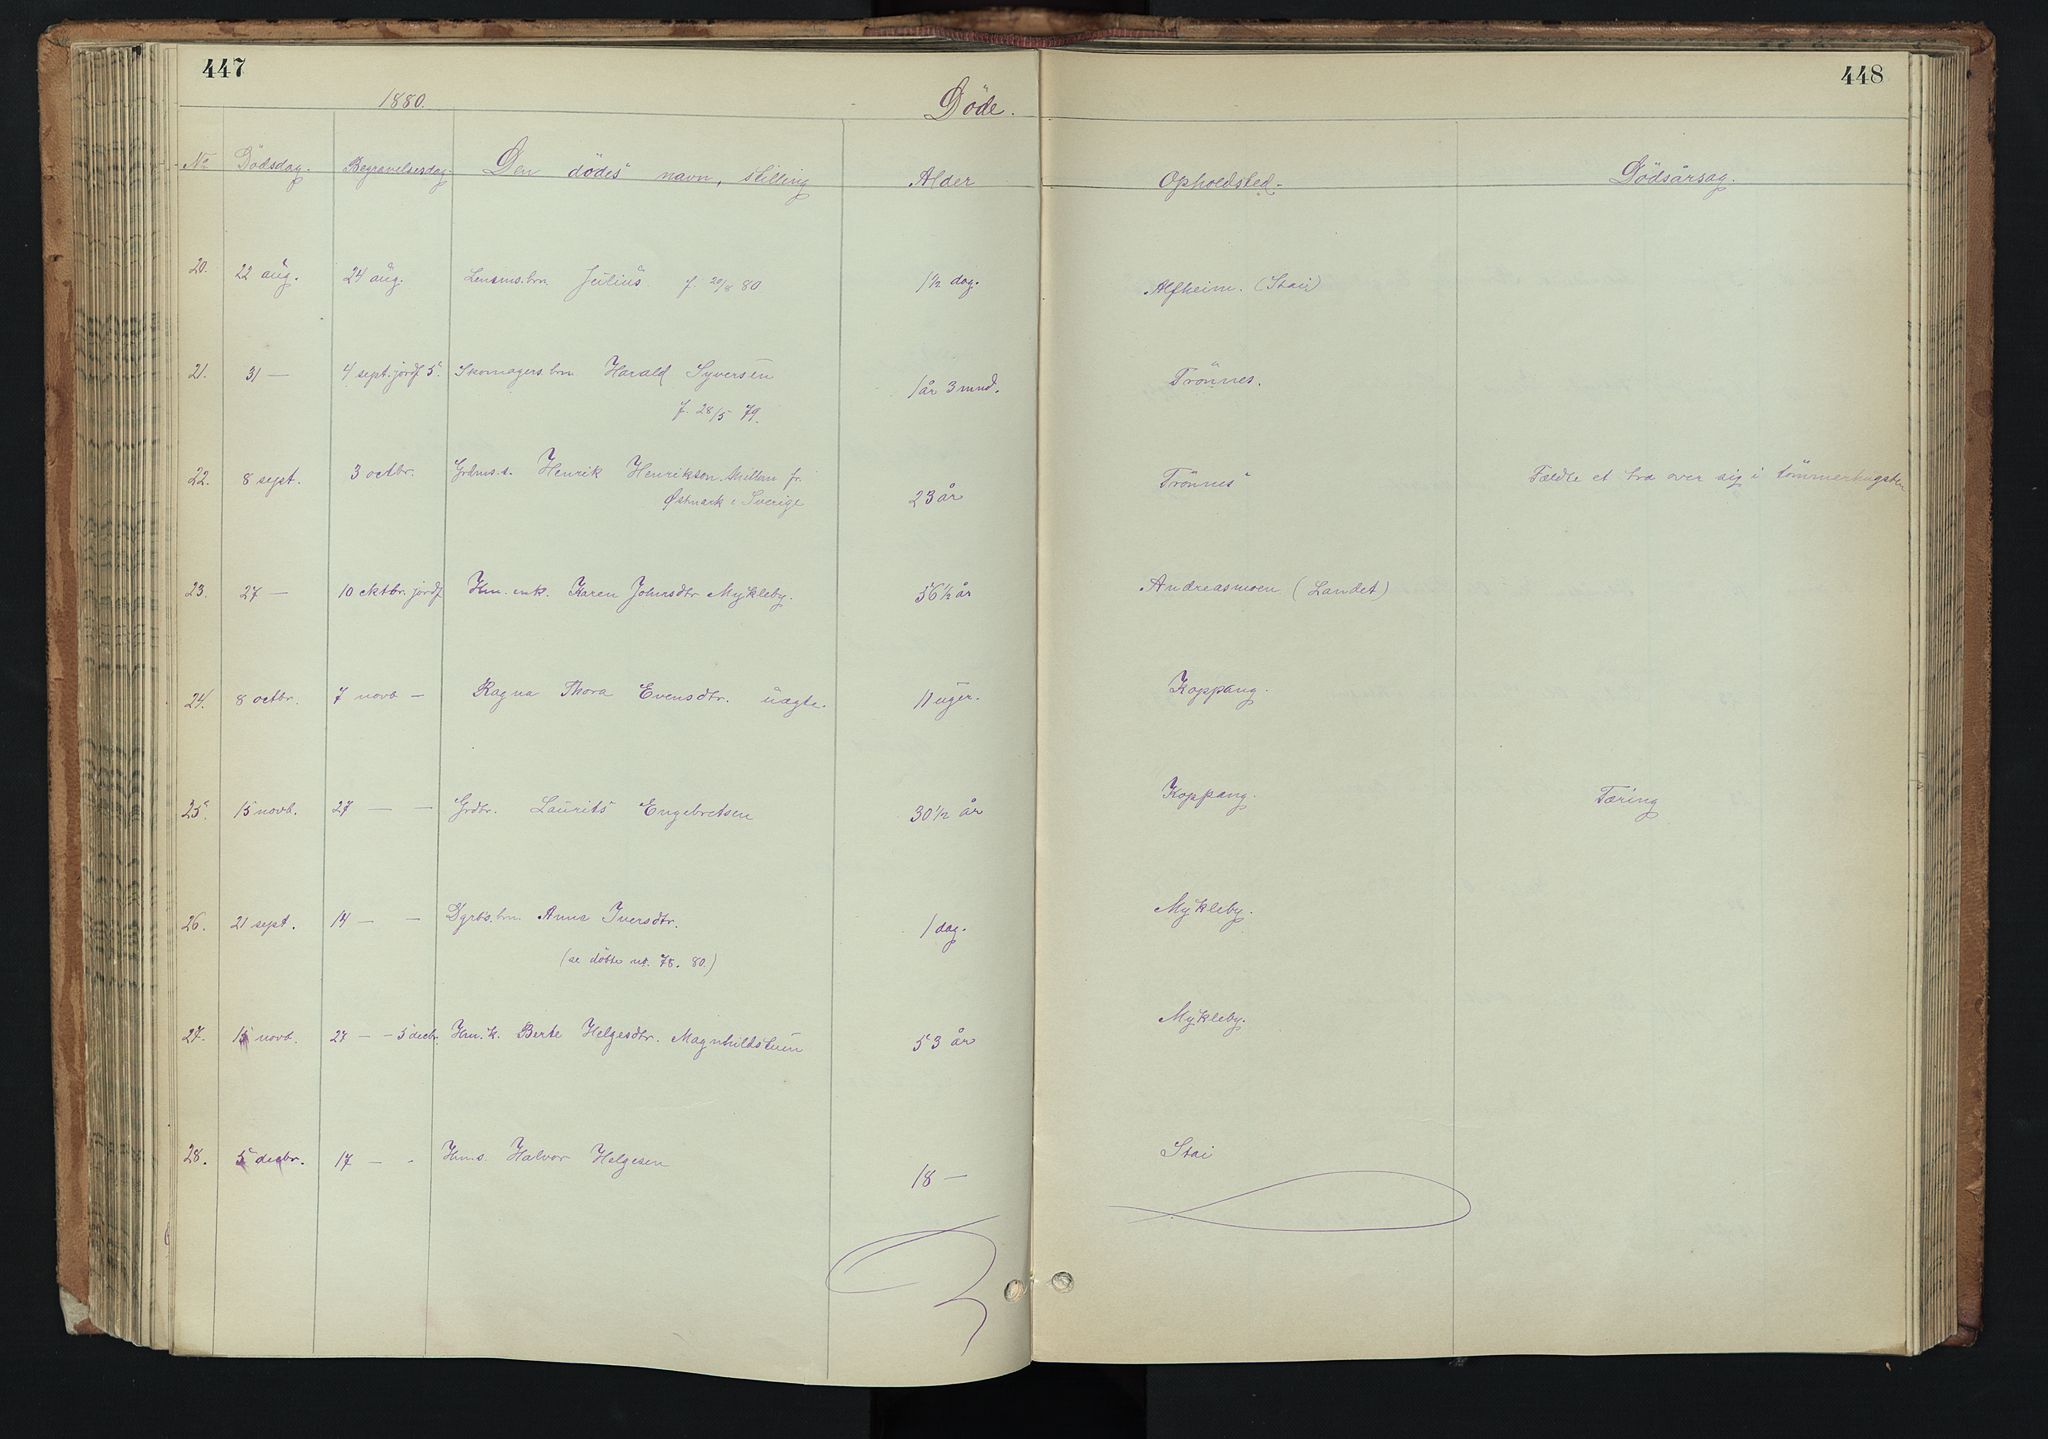 447
448
1880.
Döde.
No Dödsdag. Begravelsesdag. Den dödes navn, stilling Alder Opholdsted. Dödsårsag.
20. 22 aug. 24 aug. Lensms. brn Julius f. 20/8 80 1½ dag. Alfheim. (Stai)
21. 31 — 4 sept. jordf 5. Skomagers brn Harald Syversen 1 år 3 mnd. Trönnes.
f. 28/5 79.
22. 8 sept. 3 octbr. Grdms. s. Henrik Henrikson fr. 23 år Trönnes Fældte et træ over sig i tömmerhugsten
Østmark i Sverige
23. 27 — 10 oktbr. jordf Hm. enk. Karen Johnsdtr Mykleby. 56½ år Andreasmoen (Landet)
24. 8 octbr. 7 novb — Ragna Thora Evensdtr. uægte. 11 uger. Koppang.
25. 15 novb. 27 — — Grdbr. Laurits Engebretsen 30½ år Koppang. Tæring
26. 21 sept. 14 — — Dgrbs. brn. Anne Iversdtr. 1 dag. Mykleby.
(se döbte no. 78. 80.)
27. 15 novb. 27 — - 5 decbr. Hm. k. Berte Helgesdtr. Magnhildstuen 53 år Mykleby.
28. 5 decbr. 17 — - Hms. Halvor Helgesen 18 — Stai